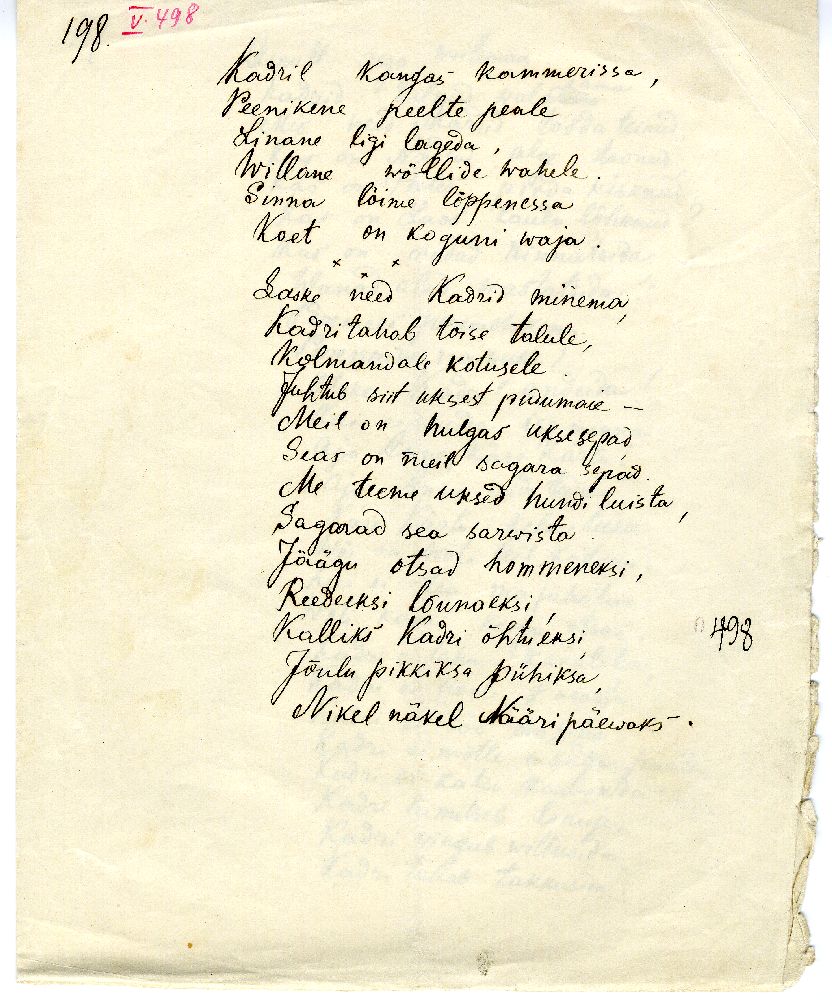 198. V. 498
Kadril kangas kammerissa,
Peenikene peelte peale
Linane ligi lageda,
Willane wõllide wahele.
Sinna lõime lõppenessa
Koet on koguni waja.
x x x
Laske need Kadrid minema,
Kadri tahab tõise talule,
Kolmandale kotusele.
Juhtub siit uksest pudumaie —
Meil on hulgas uksesepad
Seas on meil sagara sepad.
Me teeme uksed hundi luista,
Sagarad sea sarwista.
Jäägu otsad hommeneksi,
Reedeeksi lõunaeksi,
Kalliks Kadri õhtueksi,
498
Jõulu pikkiksa pühiksa,
Nikel näkel Nääripäewaks.